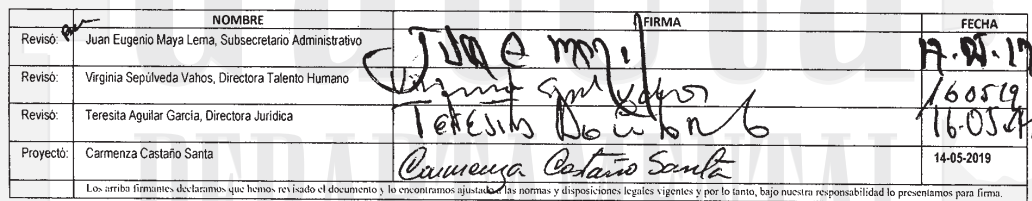 NOMBRE FIRMA FECHA
Revisó: Juan Eugenio Maya Lema, Subsecretario Administrativo
Revisó: Virginia Sepúlveda Vahos, Directora Talento Humano 160519
Revisó: Teresita Aguilar García, Directora Jurídica Teresita
Proyectó: Carmenza Castaño Santa Carmenza Castaño Santa 14-05-2019
Los arriba firmantes declaramos que hemos revisado el documento y lo encontramos ajustado a las normas y disposiciones legales vigentes y por lo tanto, bajo nuestra responsabilidad lo presentamos para firma.